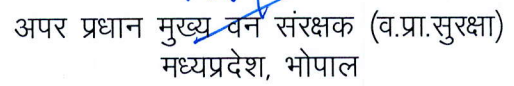 अपर प्रधान मुख्य वन संरक्षक (व.प्रा.सुरक्षा)
मध्यप्रदेश, भोपाल